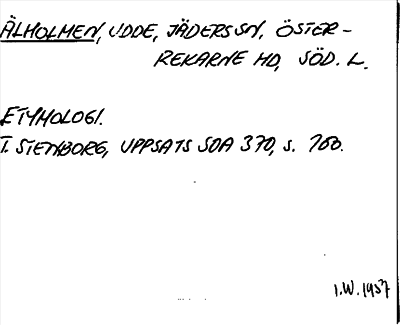 ÄLHOLMEN, UDDE, JÄDERS SN, ÖSTER-
REKARNE HD, SÖD. L.
ETYMOLOGI.
T. STENBORG, UPPSATS SOA 370, S. 760.
I.W. 1957